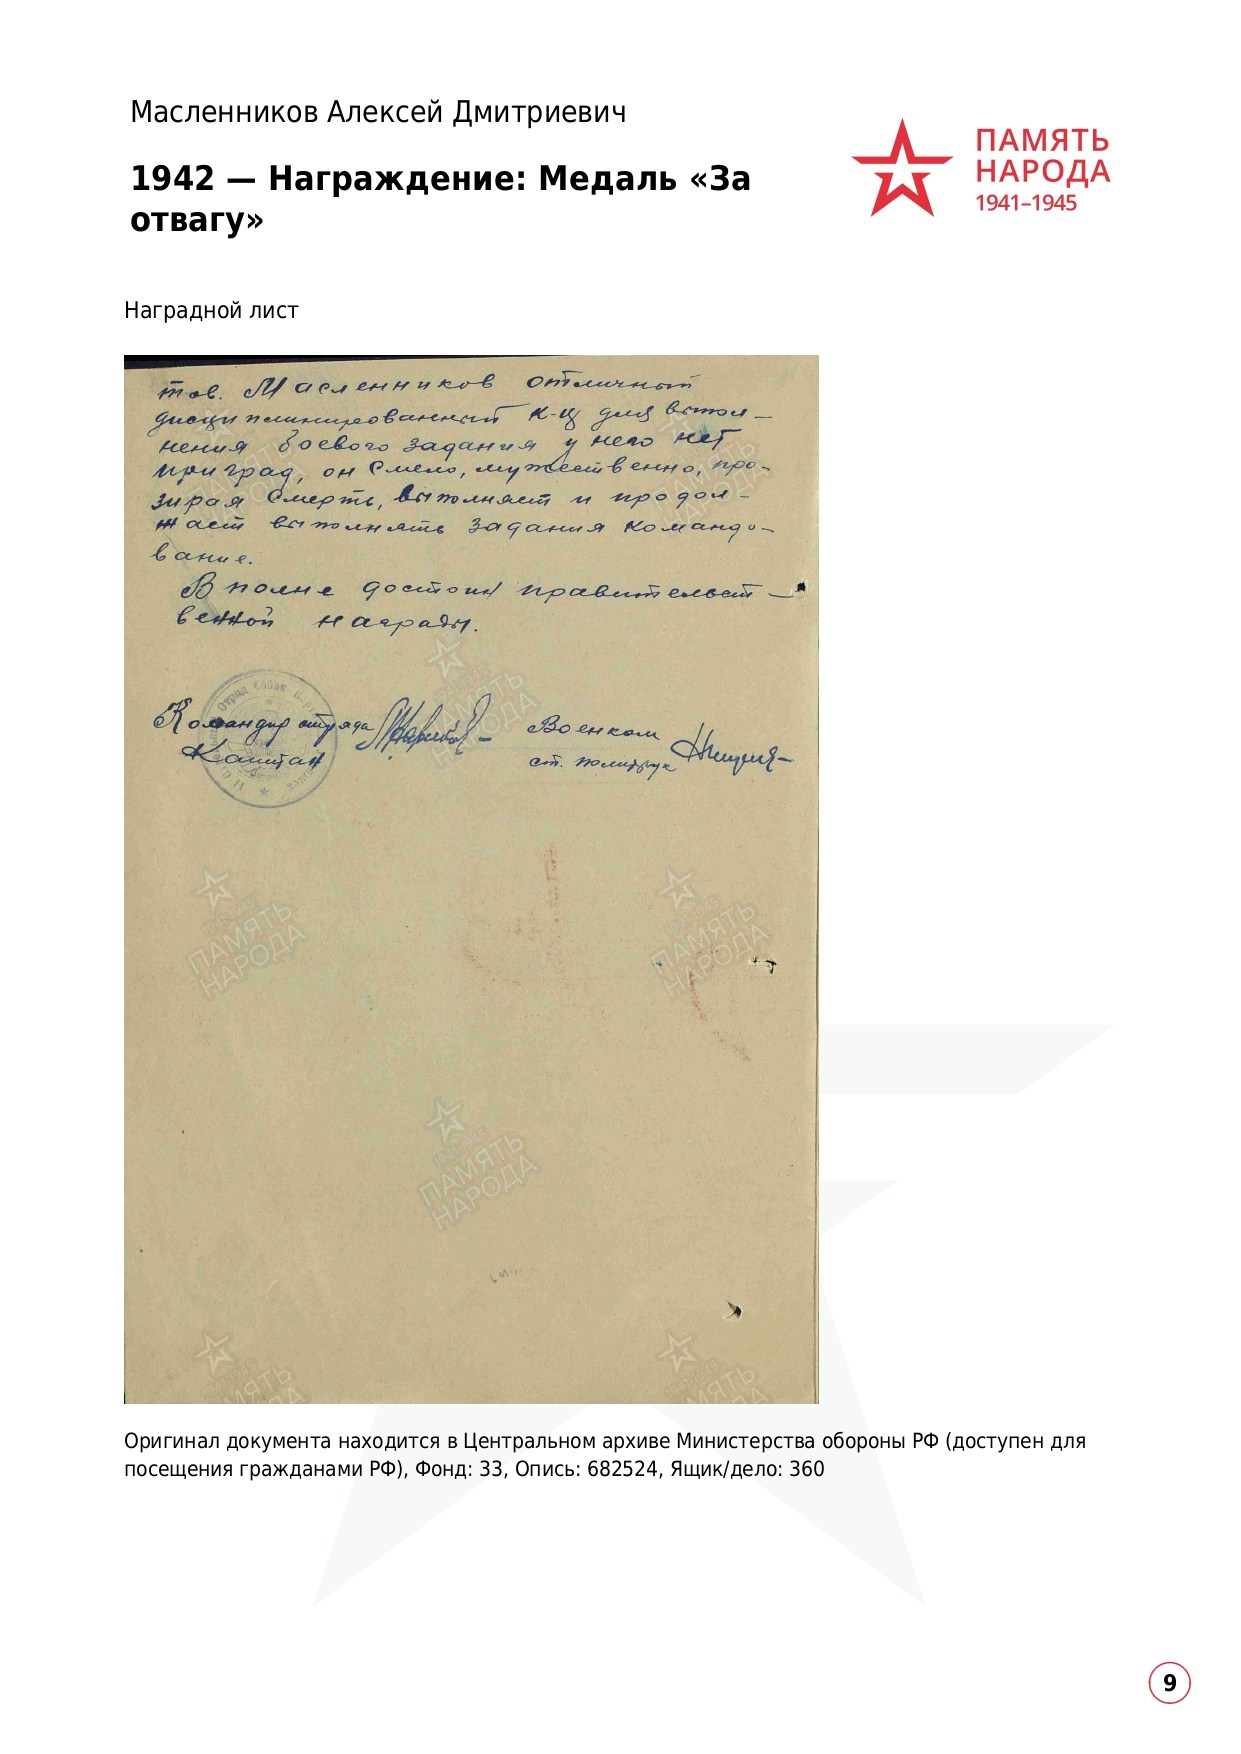 Масленников Алексей Дмитриевич
1942 — Награждение: Медаль «За
отвагу»
ПАМЯТЬ
НАРОДА
1941–1945
Наградной лист
тов. Масленников отличный
дисциплинированный к-ц для выпол-
нения боевого задания у него нет
приград, он смело, мужественно, про-
зирая смерть, выполняет и продол-
жает выполнять задания командо-
вание.
В полне достоин правительст-
венной награды.
Командир отряда
Капитан
Военком
ст. политрук
Отряд Собак
ПАМЯТЬ
НАРОДА
ПАМЯТЬ
НАРОДА
ПАМЯТЬ
НАРОДА
ПАМЯТЬ
НАРОДА
Оригинал документа находится в Центральном архиве Министерства обороны РФ (доступен для
посещения гражданами РФ), Фонд: 33, Опись: 682524, Ящик/дело: 360
9